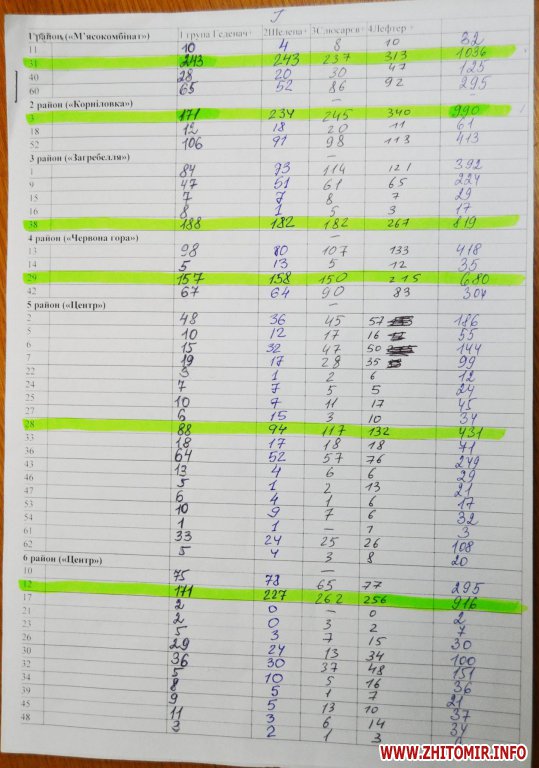 1 група Геденач 2Шелепа 3Слюсаров 4Лефтер
1 район («М'ясокомбінат»)
11 10 4 8 10 32
31 243 243 237 313 1036
40 28 20 30 47 125
60 65 52 86 92 295
2 район («Корніловка») —
3 171 234 245 340 990
18 12 18 20 11 61
52 106 91 98 118 413
3 район («Загребелля») —
1 84 73 114 121 392
9 47 51 61 65 224
15 7 7 8 7 29
16 8 1 5 3 17
38 188 182 182 267 819
4 район («Червона гора») —
13 98 80 107 133 418
14 5 13 5 12 35
29 157 158 150 215 680
42 67 64 90 83 304
5 район («Центр») —
2 48 36 45 57 186
5 10 12 17 16 55
6 15 32 47 50 144
7 19 17 28 35 99
22 3 1 2 6 12
24 7 7 5 5 24
25 10 7 11 17 45
27 6 15 3 10 34
28 88 94 117 132 431
33 18 17 18 18 71
36 64 52 57 76 249
43 13 4 6 6 29
46 5 1 2 13 21
47 6 4 1 6 17
53 10 9 7 6 32
54 1 1 — 1 3
61 33 24 25 26 108
62 5 4 3 8 20
6 район («Центр») —
10 75 78 65 77 295
12 171 227 262 256 916
17 2 0 — 0 2
21 2 0 3 2 7
23 5 3 7 15 30
26 29 24 13 34 100
32 36 30 37 48 151
34 5 10 5 16 36
35 8 5 1 7 21
39 9 5 13 10 37
45 11 3 6 14 34
48 3 2 1 3
WWW.ZHITOMIR.INFO